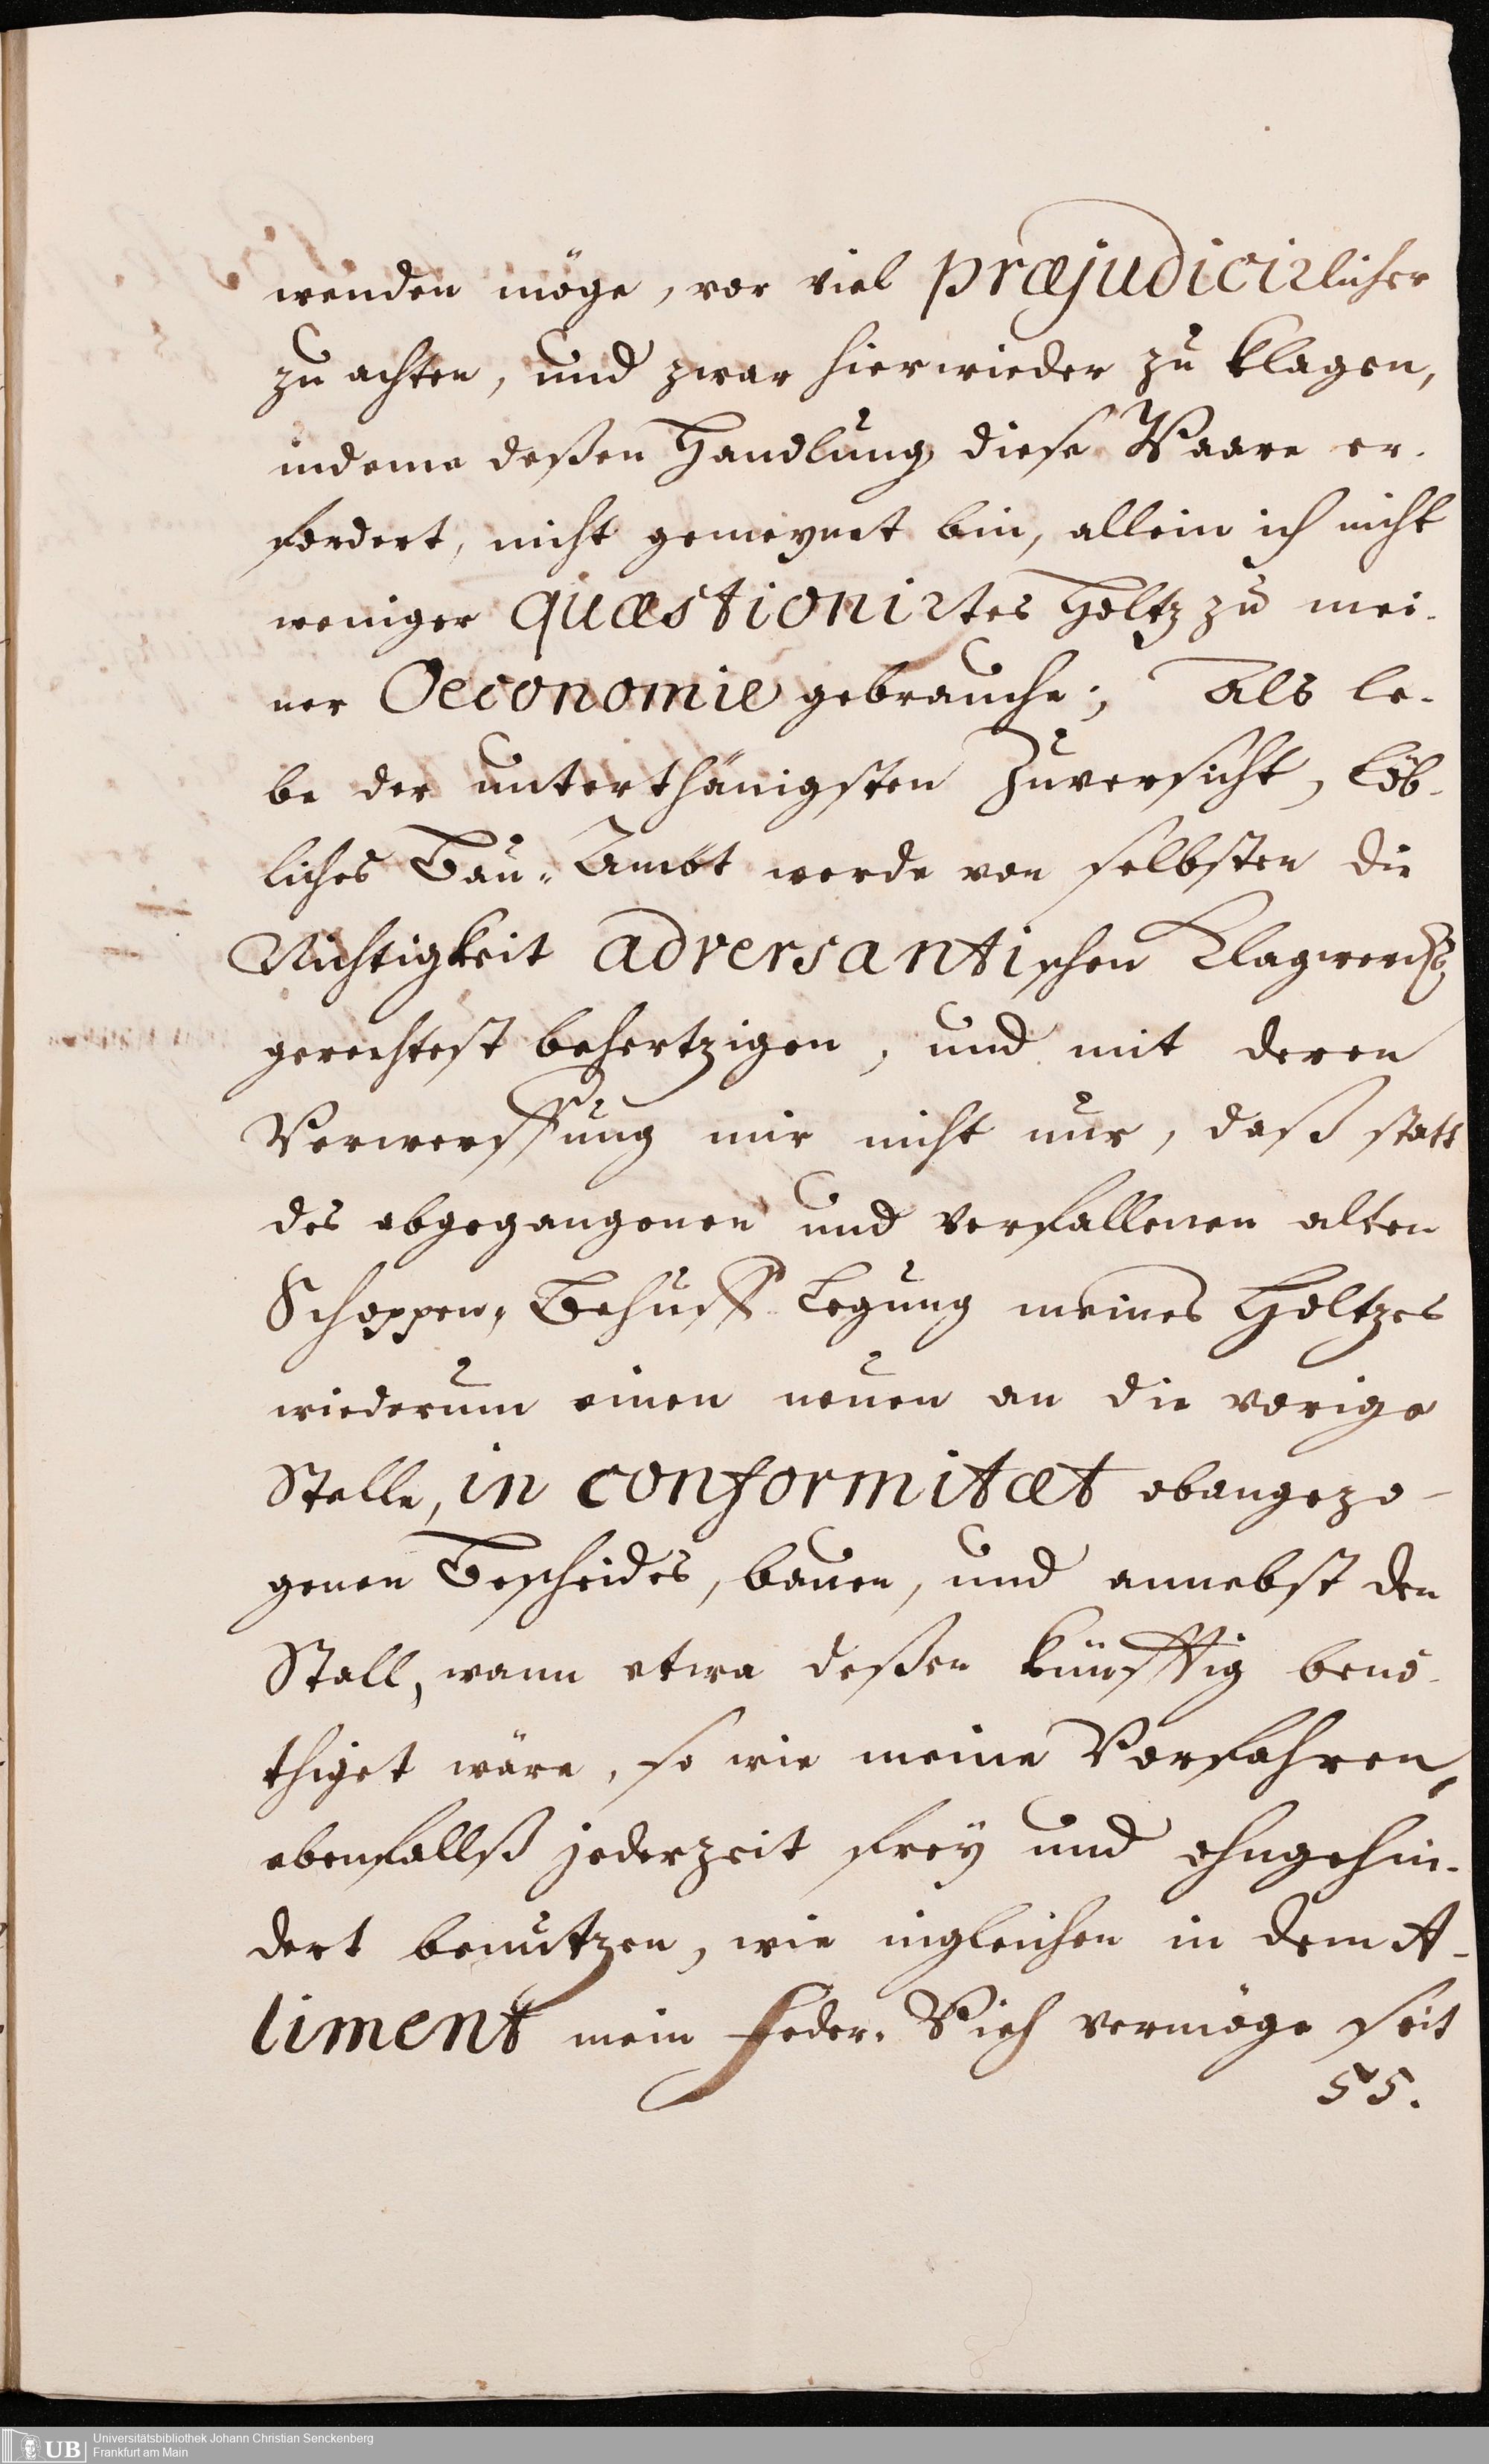 wenden möge, vor viel præjudicirlicher
zu achten, und zwar hierwieder zu klagen,
indeme deßen Handlung diese Waare er-
fordert, nicht gemeynet bin, allein ich nicht
weniger quæstionirtes Holtz zu mei-
ner Oeconomie gebrauche; Als le-
be der unterthänigsten Zuversicht, Löb-
liches Bau-Ambt werde von selbsten die
Nichtigkeit adversantischen Klagwercks
gerechtest behertzigen, und mit deren
Verwerffung mir nicht nur, daß statt
des abgegangenen und verfallenen alten
Schoppen, Behuff Legung meines Holtzes
wiederum einen neuen an die vorige
Stelle, in conformitæt obangezo-
genen Bescheides, bauen, und annebst den
Stall, wann etwa deßen künfftig benö-
thiget wäre, so wie meine Vorfahren,
ebenfallß jederzeit frey und ohngehin-
dert benutzen, wie ingleichen in dem A-
liment mein Feder-Vieh vermöge seit
55.
UB
Universitätsbibliothek Johann Christian Senckenberg
Frankfurt am Main